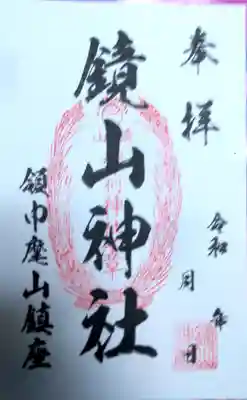 奉拝
令和 年 月 日
鏡山神社
領巾麾山鎮座